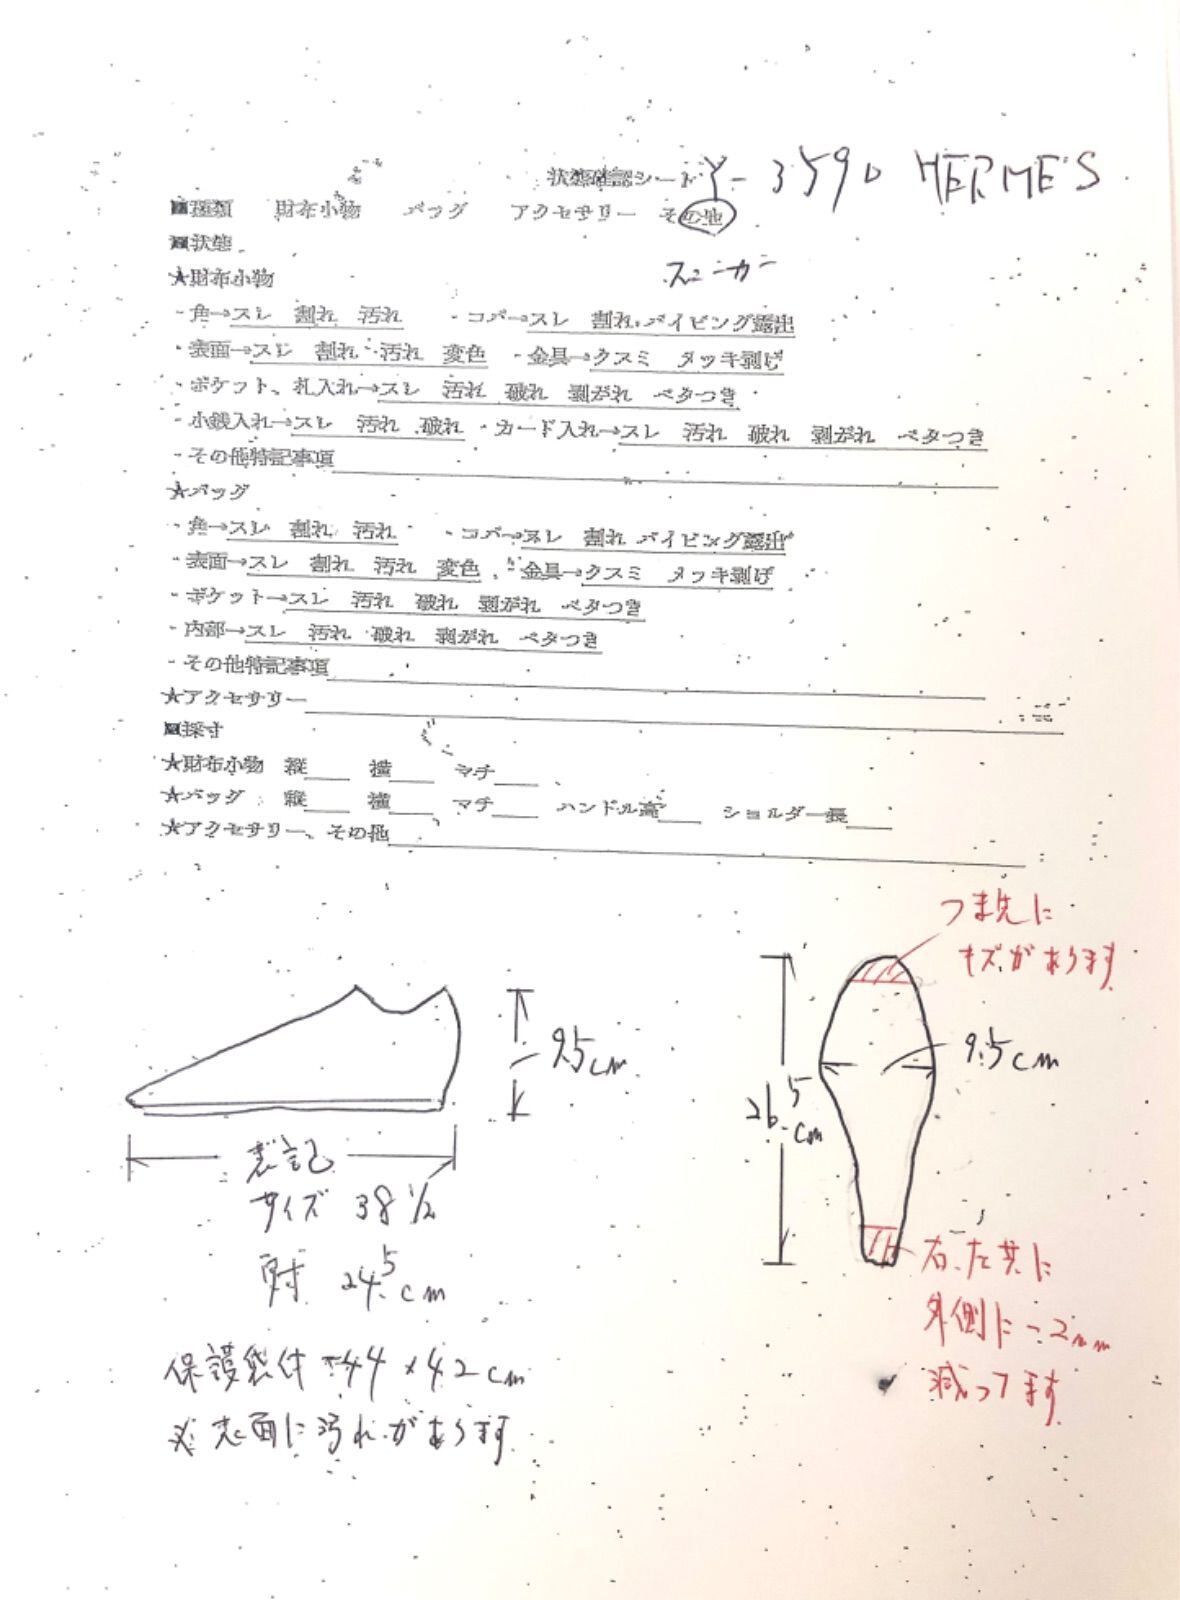 状態確認シート Y-3590 HERMES
■種類 財布小物 バッグ アクセサリー その他
■状態 スニーカー
★財布小物
・角→スレ 割れ 汚れ ・コバ→スレ 割れ パイピング露出
・表面→スレ 割れ 汚れ 変色 ・金具→クスミ メッキ剥げ
・ポケット、札入れ→スレ 汚れ 破れ 剥がれ ベタつき
・小銭入れ→スレ 汚れ 破れ ・カード入れ→スレ 汚れ 破れ 剥がれ ベタつき
・その他特記事項
★バッグ
・角→スレ 割れ 汚れ ・コバ→スレ 割れ パイピング露出
・表面→スレ 割れ 汚れ 変色 ・金具→クスミ メッキ剥げ
・ポケット→スレ 汚れ 破れ 剥がれ ベタつき
・内部→スレ 汚れ 破れ 剥がれ ベタつき
・その他特記事項
★アクセサリー
■採寸
★財布小物 縦 横 マチ
★バッグ 縦 横 マチ ハンドル高 ショルダー長
★アクセサリー、その他
つま先に
キズがあります
9.5cm
9.5cm
26.5cm
表記
サイズ 38 1/2
実寸 24.5cm
右、左共に
外側に-2mm
減ってます
保護袋付 44×42cm
※表面に汚れがあります